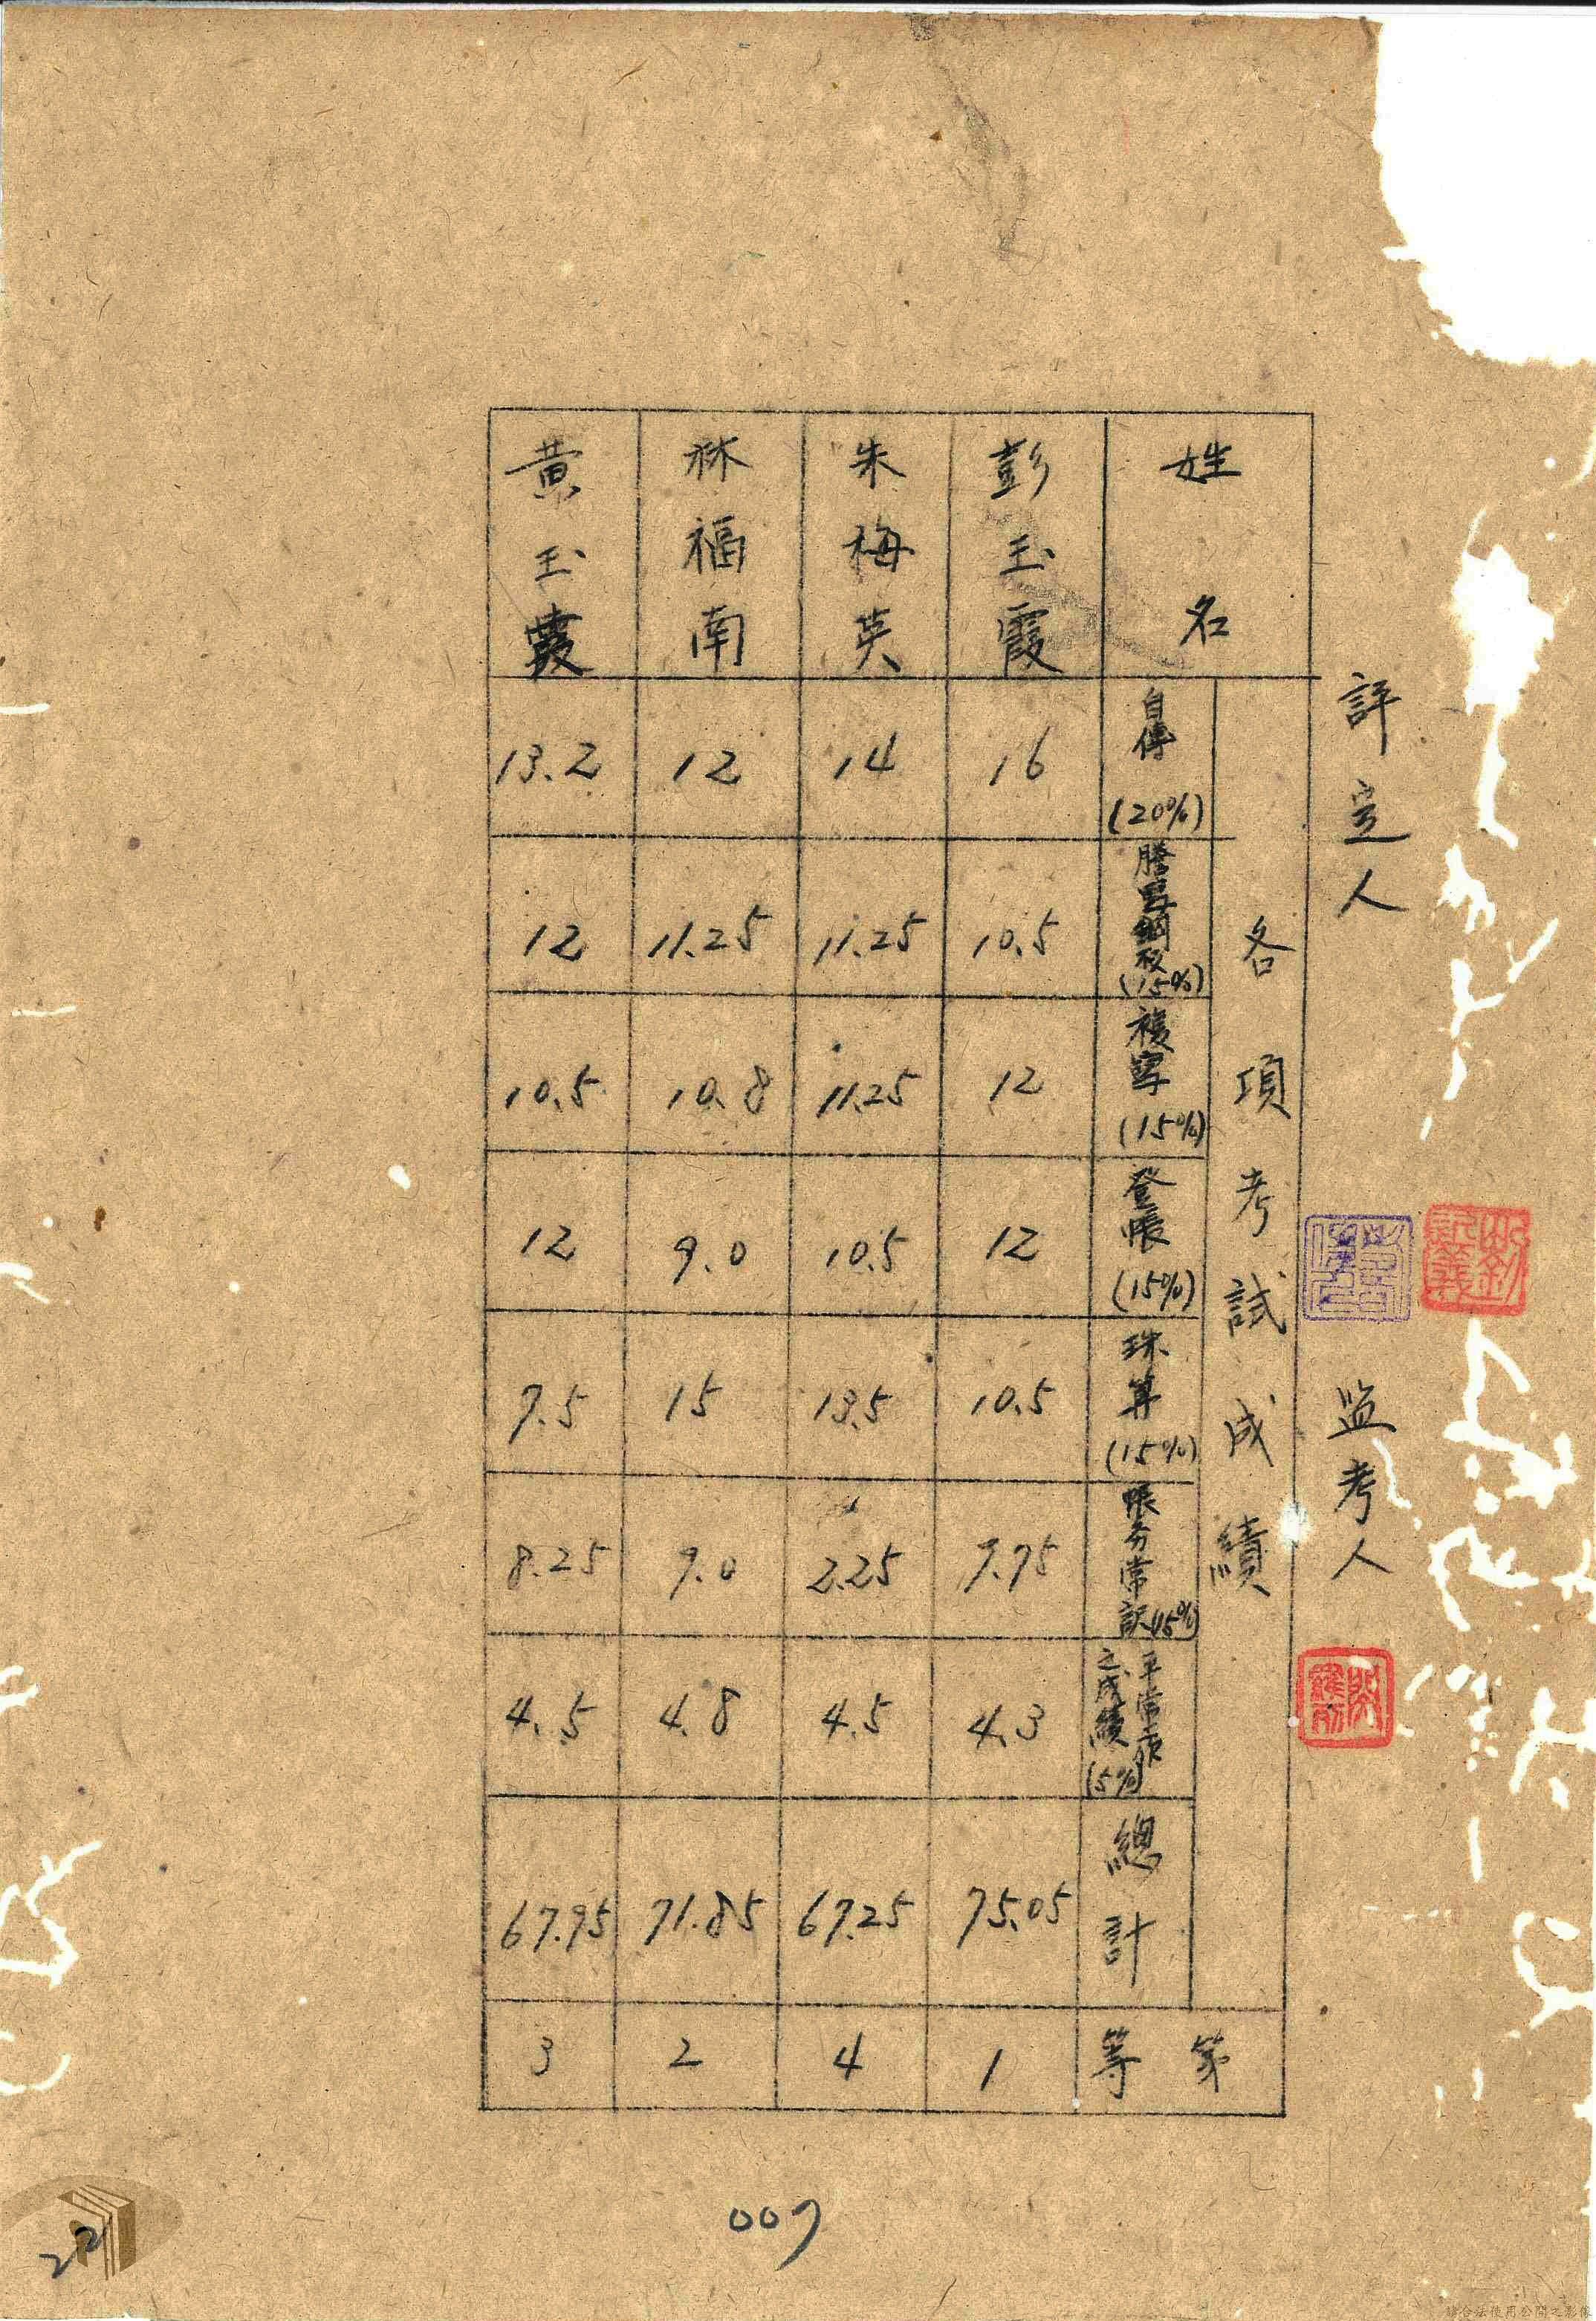 評定人 監考人
姓名 各項考試成績 等第
自傳(20%) 謄寫鋼板(15%) 複寫(15%) 登帳(15%) 珠算(15%) 帳务常識(15%) 平常考之成績(5%) 總計
彭玉霞 16 10.5 12 12 10.5 9.75 4.3 75.05 1
朱梅英 14 11.25 11.25 10.5 13.5 2.25 4.5 67.25 4
林福南 12 11.25 10.8 9.0 15 9.0 4.8 71.85 2
黃玉霞 13.2 12 10.5 12 7.5 8.25 4.5 67.95 3
007
22